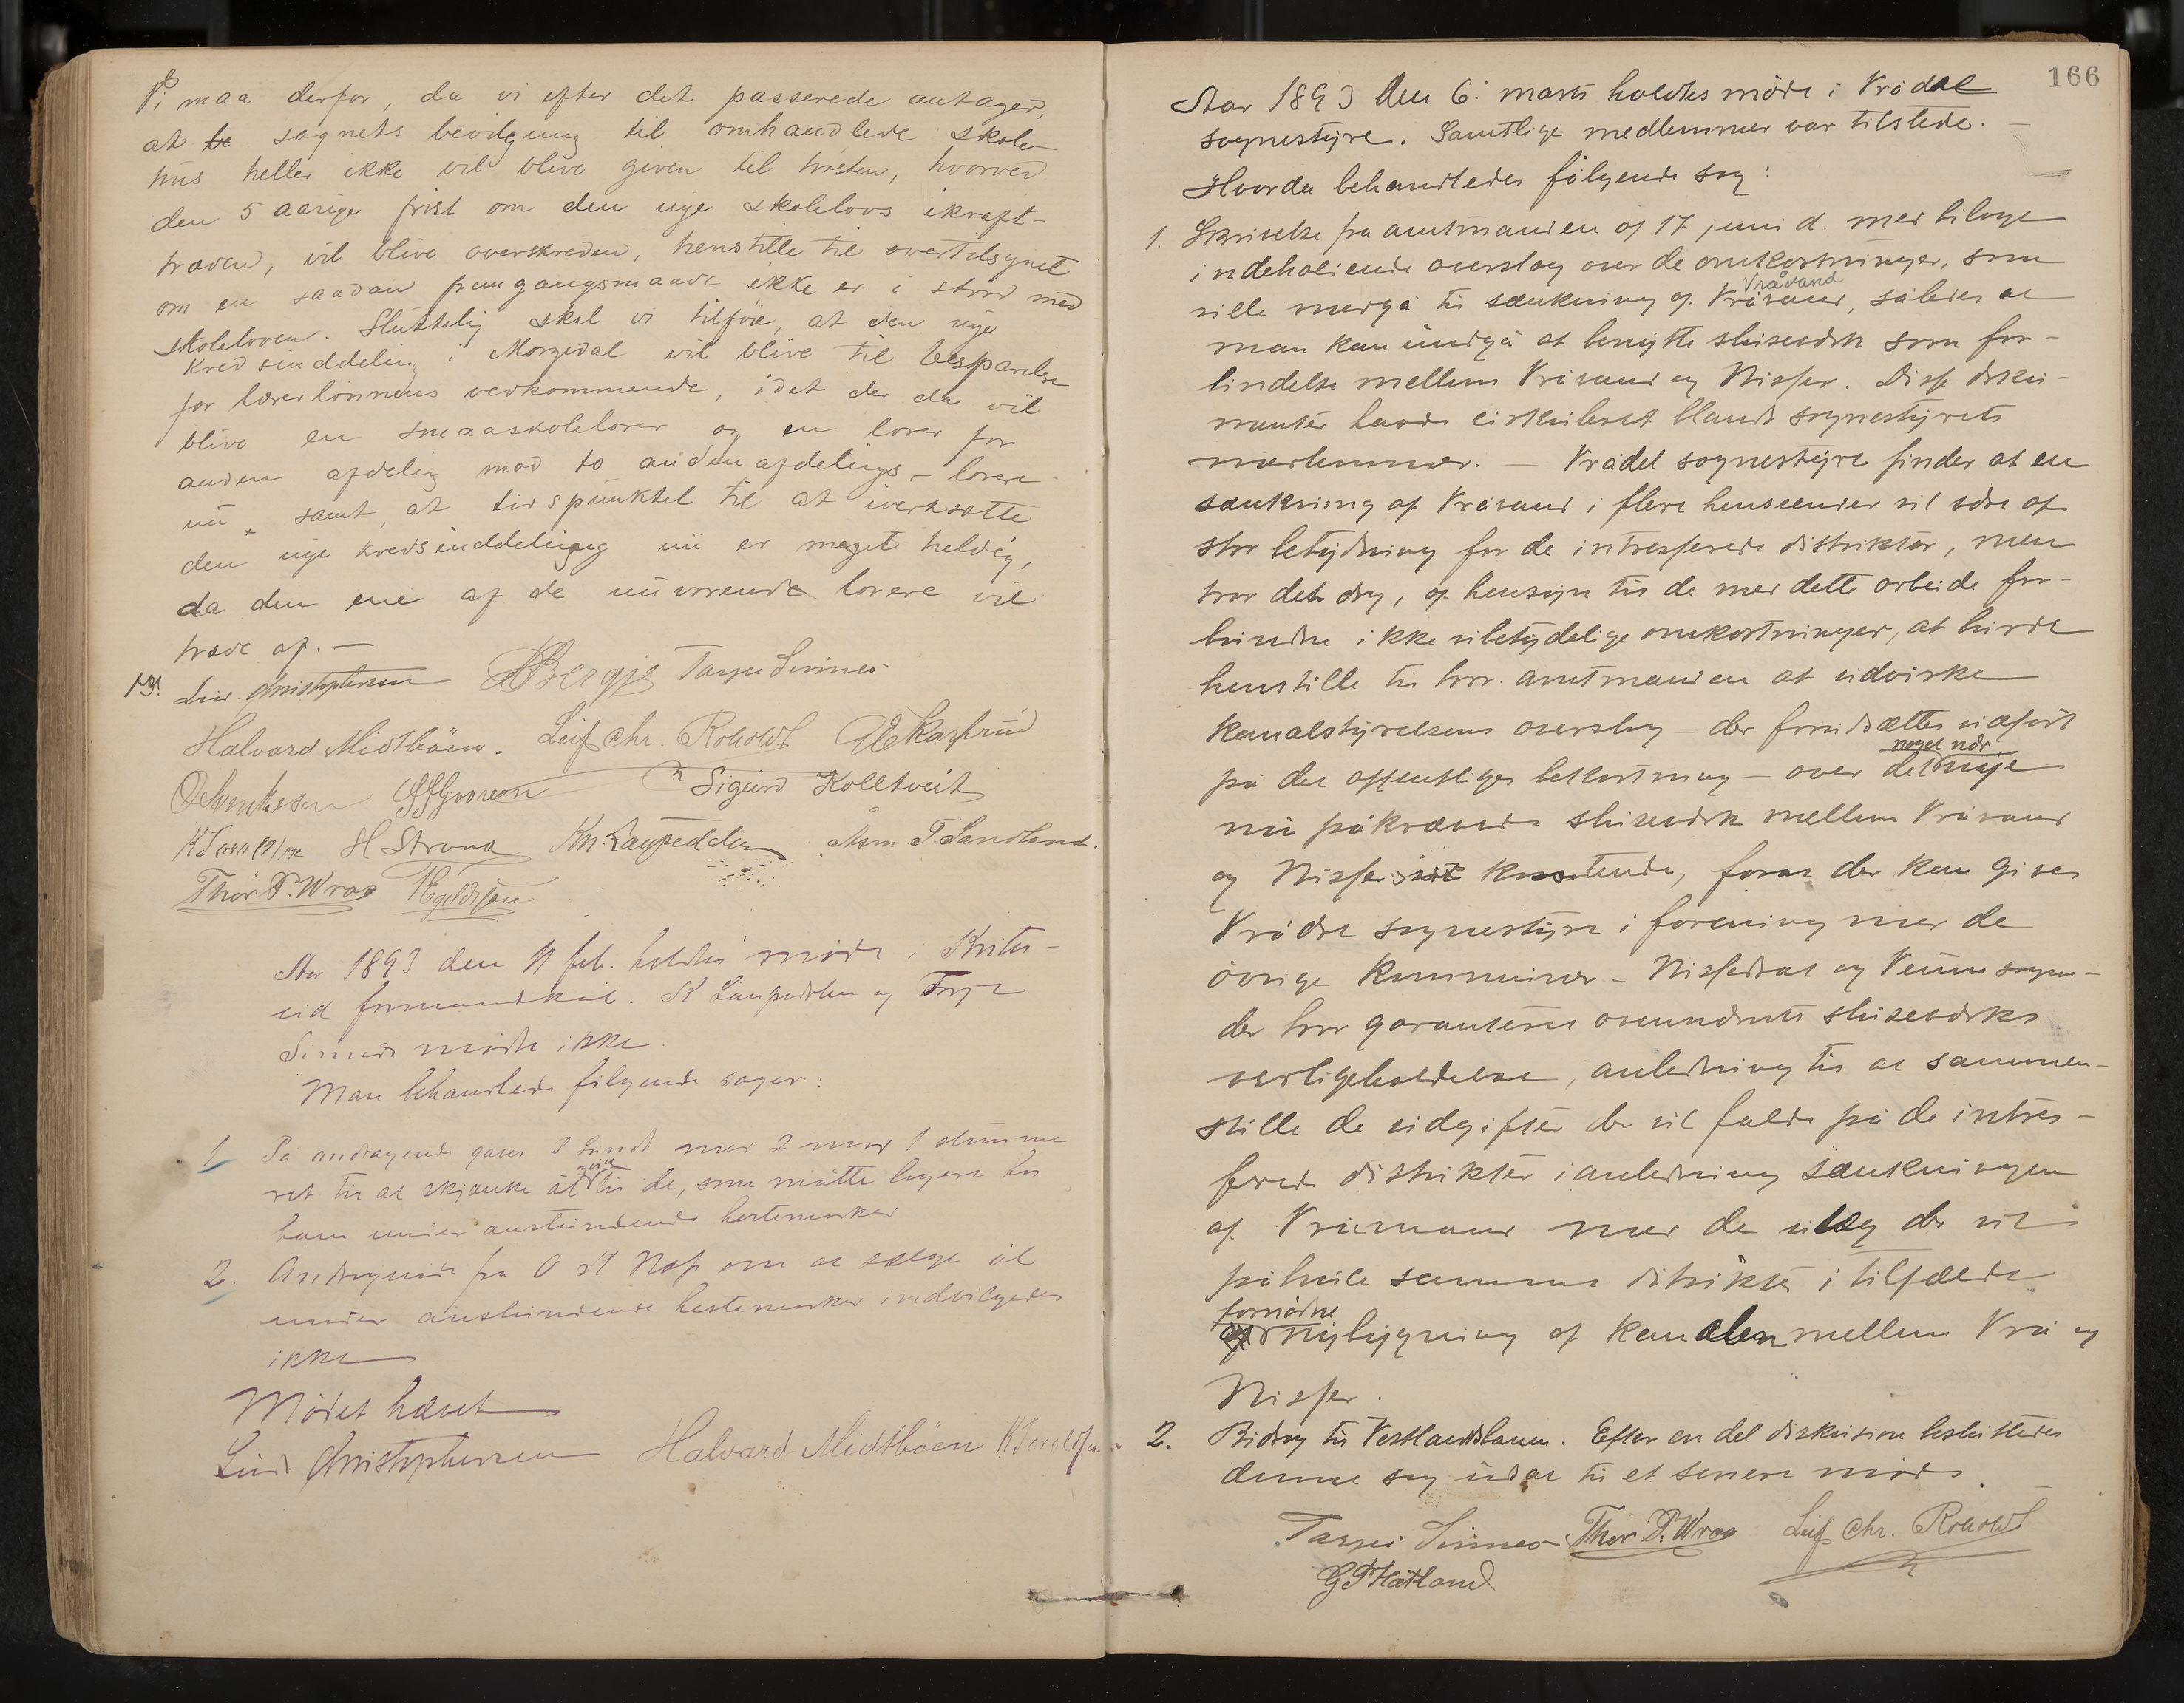 Vi maa derfor, da vi efter det passerede antager,
at sognets bevilgning til omhandlede skole
hus heller ikke vil blive given til høsten, hvorved
den 5 aarige frist om den nye skolelovs ikraft-
træden, vil blive overskreden, henstille til overtilsynet
om en saadan fremgangsmaade ikke er i strid med
skoleloven. Sluttelig skal vi tilføie, at den nye
kredsinddeling i Morgedal vil blive til besparelse
for lærerlønnens vedkommende, idet der da vil
blive en smaaskolelærer og en lærer for
anden afdeling mod to anden afdelings-lærere
nu, samt at tidspunktet til at iverksætte
den nye kredsinddeling nu er meget heldig,
da den ene af de nuværende lærere vil
træde af. —
Lud. Christophersen Bergje Tarjei Sinnes
Halvard Midtbøen. Leif Chr. Roholdt
Sigurd Kolltveit
H Strand Kn. Laupedalen Asm. T. Sandland.
Thor P. Wraa
Aar 1893 den 11 feb. holdtes møde i Kvites-
eid formandskab. K Laupedalen og Tarje
Sinnes mødte ikke.
Man behandlede følgende sager:
1. På andragende gaves Lundt med 2 mod 1 stemme
ret til at skjænke øl til de, som måtte logere hos
ham under anstundende hestemarked
2. Andragende fra O K Næs om at sælge øl
under anstundende hestemarked indvilgedes
ikke
Mødet hævet
Lud. Christophersen Halvard Midtbøen
166
Aar 1893 den 6. marts holdtes møde i Vrådal
sognestyre. Samtlige medlemmer var tilstede. —
Hvorda behandledes følgende sag:
1. Skrivelse fra amtmanden af 17 juni d. med bilage
indeholdende overslag over de omkostninger, som
Vråvand
ville medgå til sænkning af Vråvand, således at
man kan undgå at benytte sluseværk som for-
bindelse mellem Vråvand og Nisser. Disse doku-
menter havde cirkuleret blandt sognestyrets
medlemmer. — Vrådal sognestyre finder at en
sænkning af Vråvand i flere henseender vil være af
stor betydning for de intresserede distrikter, men
tror det dog, af hensyn til de med dette arbeide for-
bundne ikke ubetydelige omkostninger, at burde
henstille til hr. amtmanden at udvirke
kanalstyrelsens overslag — der forudsættes udført
på det offentliges bekostning — over
noget nær
det nye
nu påkrævede sluseværk mellem Vråvand
og Nisser kostende, forat der kan gives
Vrådal sognestyre i forening med de
øvrige kommuner — Nissedal og Veum sogn —
der har garanteret ovennævnte sluseværks
vedligeholdelse, anledning til at sammen-
stille de udgifter der vil falde på de intres-
serede distrikter i anledning sænkningen
af Vråvand med de udlæg der vil
påhvile samme distrikter i tilfælde
fornøden
nybygning af kanalen mellem Vrå og
Nisser.
2. Bidrag til Vestlandsbanen. Efter en del diskusion besluttedes
denne sag udsat til et senere møde
Tarjei Sinnes Thor P. Wraa Leif Chr. Roholdt
G P Hatland